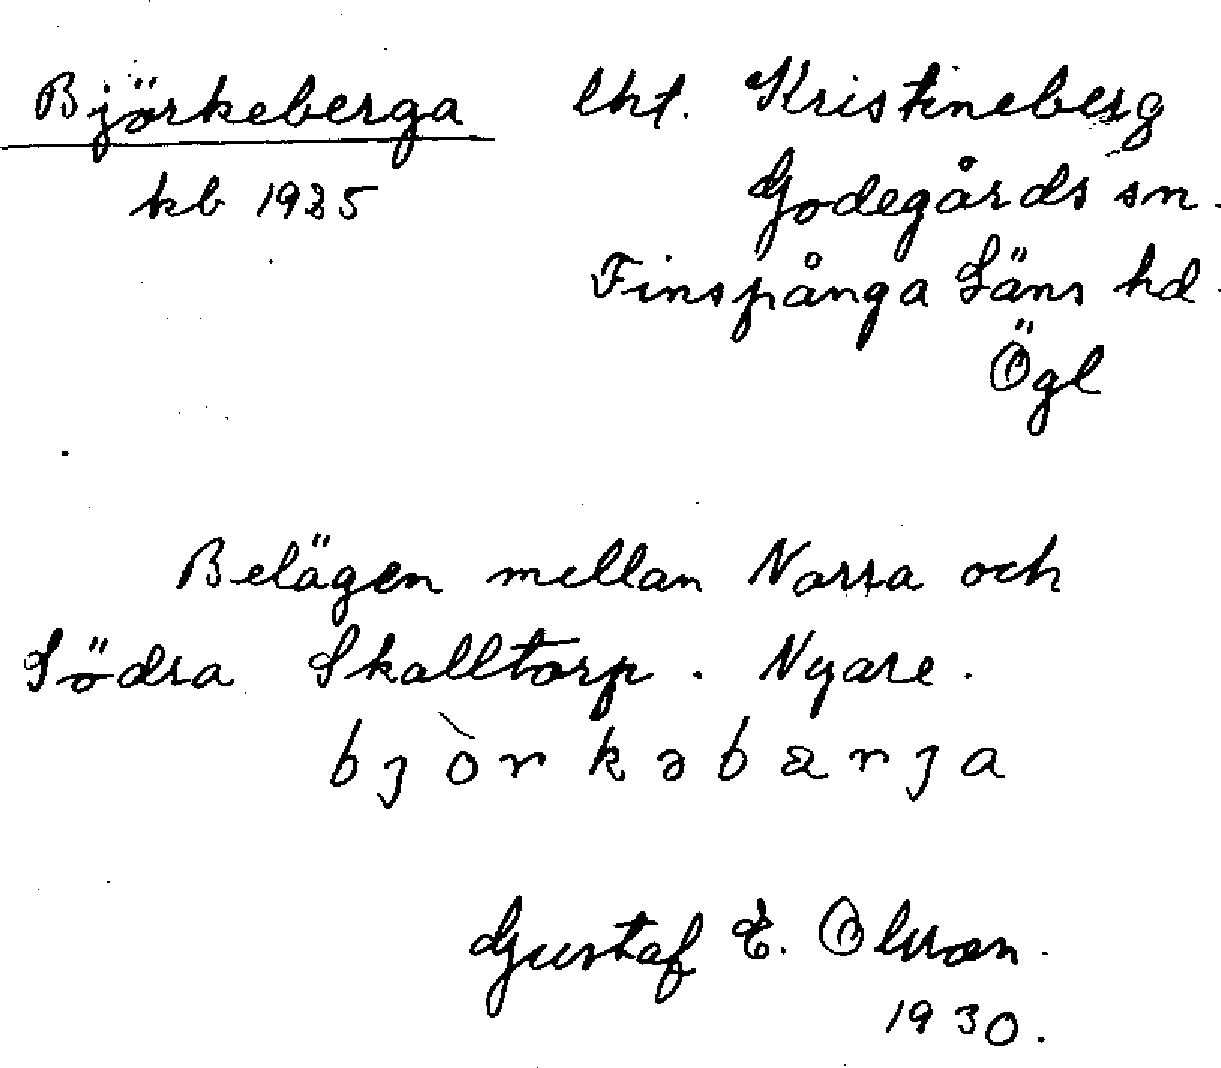 Björkeberga lht. Kristineberg
kb 1925 Godegårds sn.
Finspånga Läns hd.
Ögl
Belägen mellan Norra och
Södra Skalltorp. Nyare.
bjòrkəbærja
Gustaf E. Olsson.
1930.